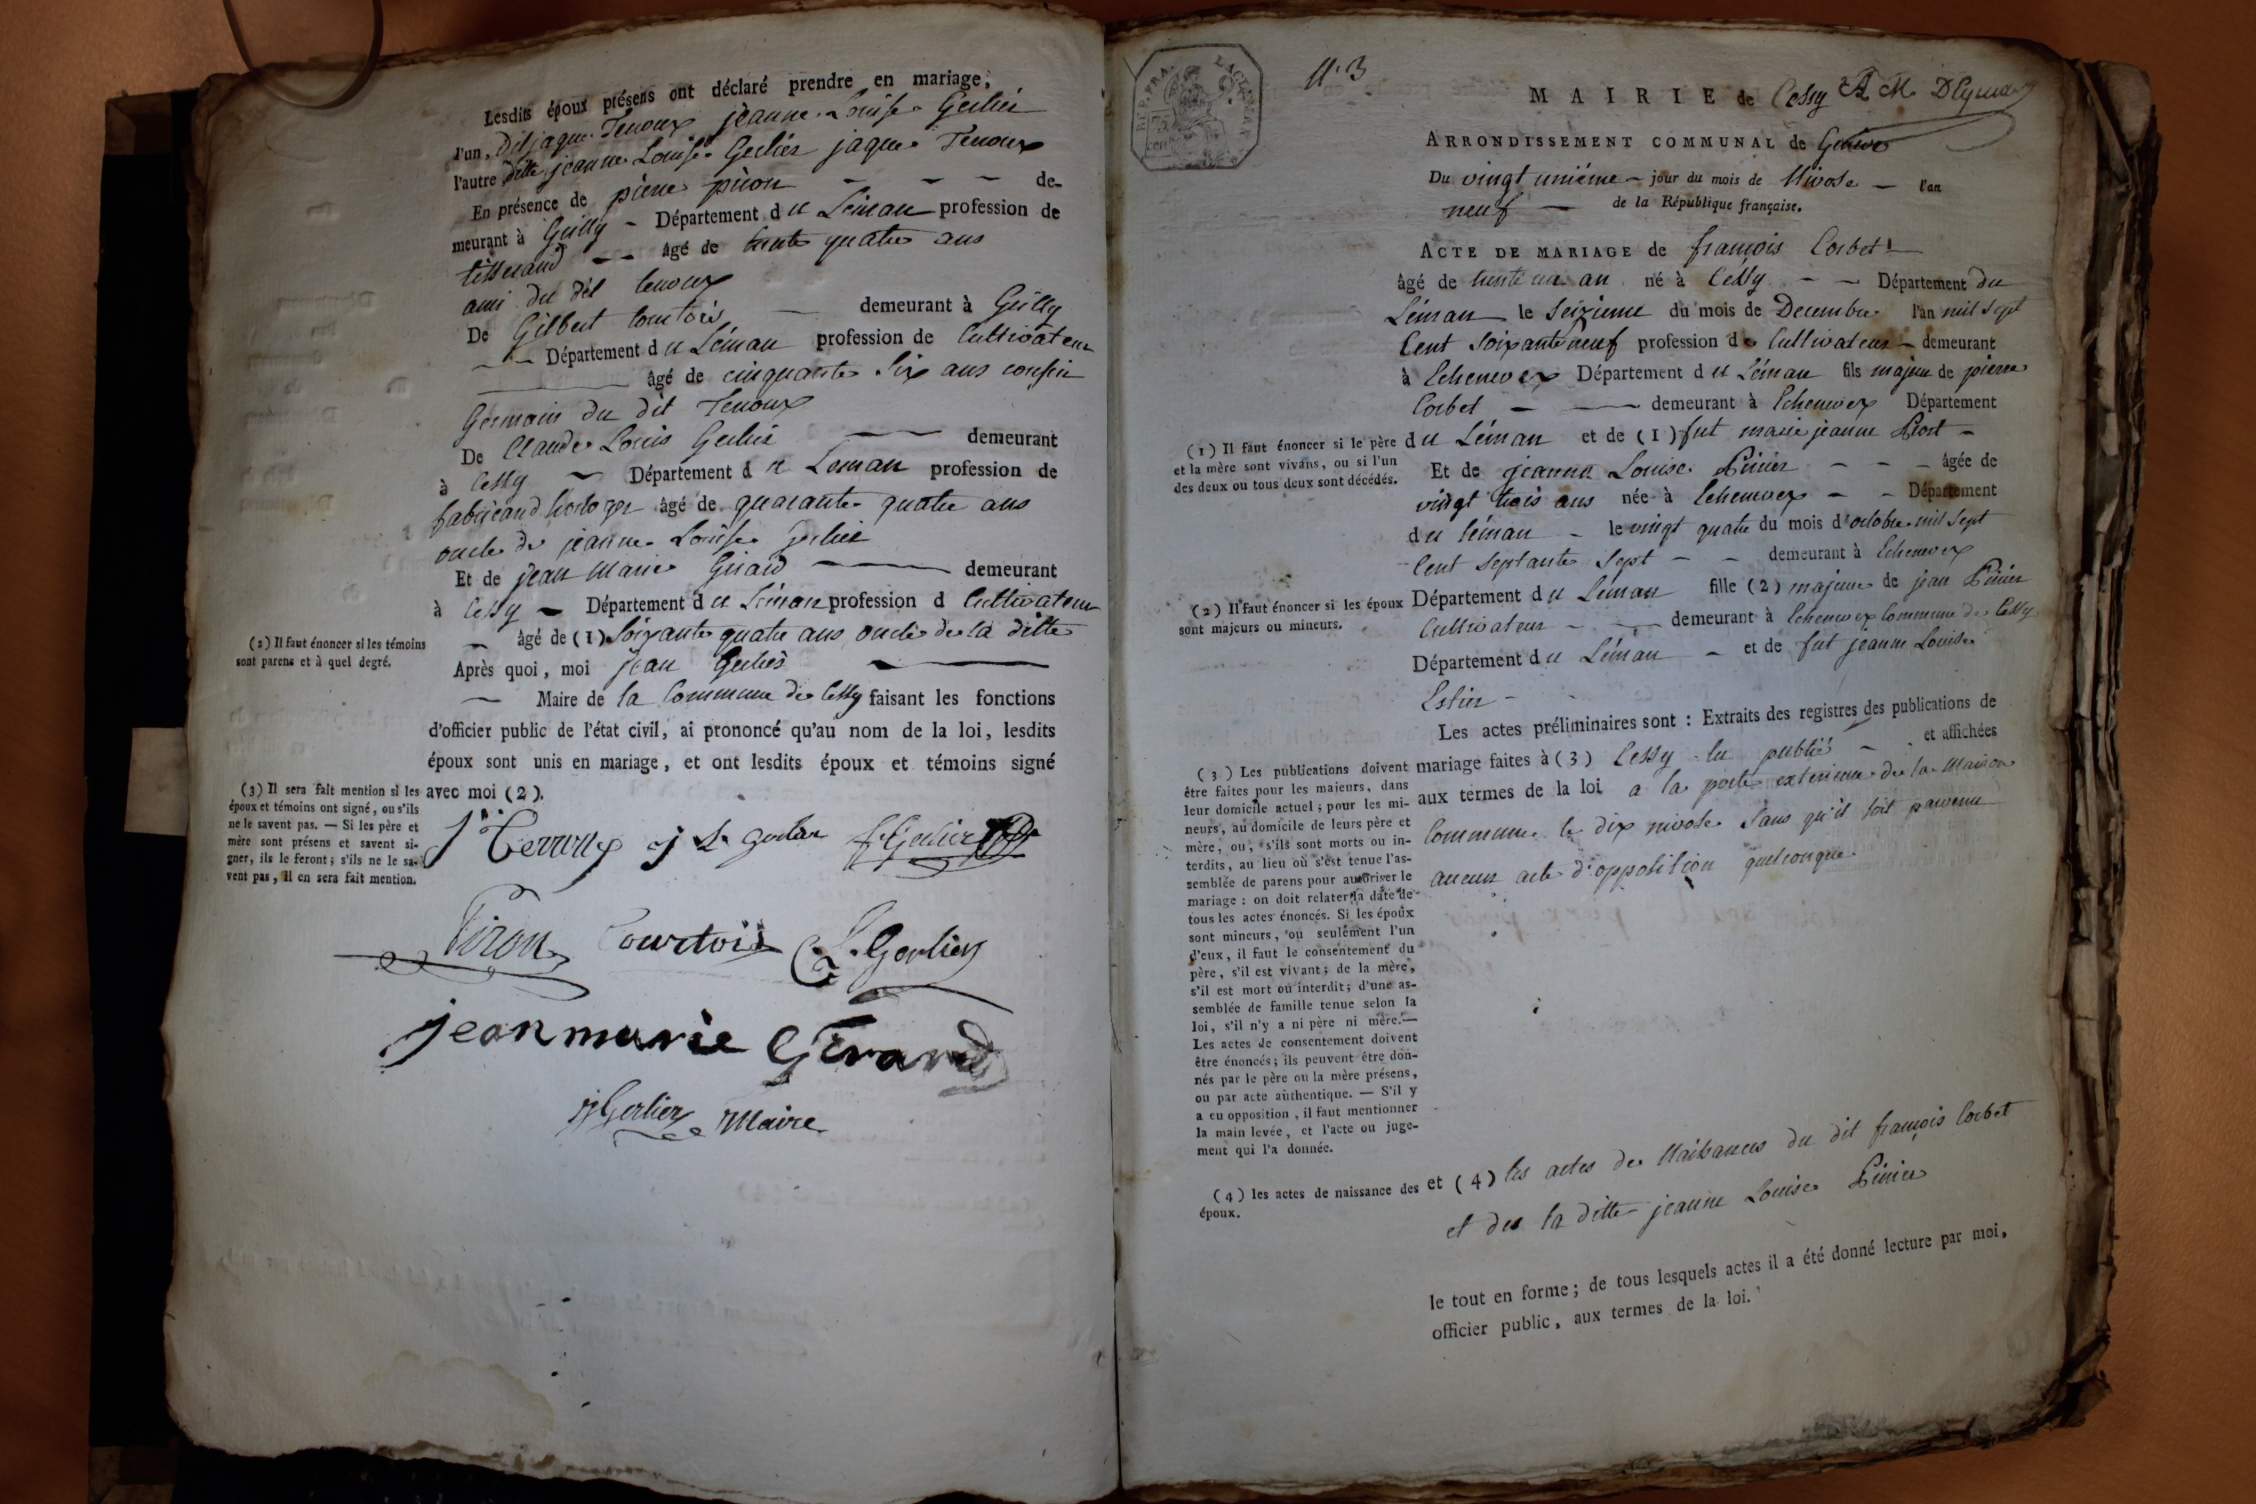 Lesdits époux présens ont déclaré prendre en mariage,
l'un, Dit jaque Tenoux jeanne Louise Gerlier
l'autre ditte jeanne Louise Gerlier jaque Tenoux
En présence de pierre piron de-
meurant à Grilly Département du Léman profession de
tisserand âgé de trente quatre ans
ami du dit tenoux
De Gilbert Courtois demeurant à Grilly
Département du Léman profession de Cultivateur
âgé de cinquante six ans cousin
Germain du dit Tenoux
De Claude Louis Gerlier demeurant
à Cessy Département du Leman profession de
fabricand horloger âgé de quarante quatre ans
oncle de jeanne Louise Gerlier
Et de jean Marie Girard demeurant
à Cessy Département du Léman profession d Cultivateur
âgé de (1) Soixante quatre ans oncle de la ditte
(2) Il faut énoncer si les témoins
sont parens et à quel degré.
Après quoi, moi jean Gerlier
Maire de la Commune de Cessy faisant les fonctions
d'officier public de l'état civil, ai prononcé qu'au nom de la loi, lesdits
époux sont unis en mariage, et ont lesdits époux et témoins signé
avec moi (2).
(3) Il sera fait mention si les
époux et témoins ont signé, ou s'ils
ne le savent pas. — Si les père et
mère sont présens et savent si-
gner, ils le feront; s'ils ne le sa-
vent pas, il en sera fait mention.
j L gerlier Gerlier
Piron Courtois C L Gerlier
jean marie Girard
Gerlier Maire
N.° 3
REP. FRA.
75 cent
MAIRIE de Cessy
ARRONDISSEMENT COMMUNAL de Genève
Du vingt unième jour du mois de Nivose l'an
neuf de la République française.
ACTE DE MARIAGE de françois Corbet
âgé de trente un an né à Cessy Département du
Léman le Seizieme du mois de Decembre l'an mil sept
Cent Soixante neuf profession de Cultivateur demeurant
à Echenevex Département du Léman fils majeur de pierre
Corbet demeurant à Echenevex Département
du Léman et de (1) fut marie jeanne
(1) Il faut énoncer si le père
et la mère sont vivans, ou si l'un
des deux ou tous deux sont décédés.
Et de jeanne Louise âgée de
vingt trois ans née à Echenevex Département
du Léman le vingt quatre du mois d'octobre mil sept
Cent Septante Sept demeurant à Echenevex
Département du Léman fille (2) majeure de jean
(2) Il faut énoncer si les époux
sont majeurs ou mineurs.
Cultivateur demeurant à Echenevex Commune de Cessy
Département du Léman et de fut jeanne Louise
Les actes préliminaires sont : Extraits des registres des publications de
mariage faites à (3) Cessy lu publié et affichées
aux termes de la loi a la porte exterieure de la Maison
Commune le dix nivose Sans qu'il soit parvenu
aucun acte d'opposition quelconque.
(3) Les publications doivent
être faites pour les majeurs, dans
leur domicile actuel; pour les mi-
neurs, au domicile de leurs père et
mère, ou, s'ils sont morts ou in-
terdits, au lieu où s'est tenue l'as-
semblée de parens pour autoriser le
mariage : on doit relater la date de
tous les actes énoncés. Si les époux
sont mineurs, ou seulement l'un
d'eux, il faut le consentement du
père, s'il est vivant; de la mère,
s'il est mort ou interdit; d'une as-
semblée de famille tenue selon la
loi, s'il n'y a ni père ni mère.—
Les actes de consentement doivent
être énoncés; ils peuvent être don-
nés par le père ou la mère présens,
ou par acte authentique. — S'il y
a eu opposition, il faut mentionner
la main levée, et l'acte ou juge-
ment qui l'a donnée.
(4) les actes de naissance des
époux.
et (4) les actes de Naissances du dit françois Corbet
et de la ditte jeanne Louise
le tout en forme; de tous lesquels actes il a été donné lecture par moi,
officier public, aux termes de la loi.